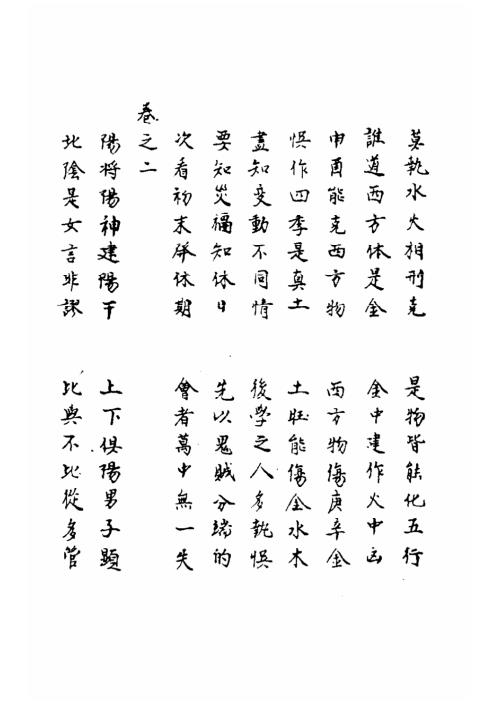 莫執水火相刑克　是物皆能化五行
誰道西方休是金　金中建作火中凶
申酉能克西方物　西方物傷庚辛金
悞作四季是真土　土旺能傷金水木
盡知變動不同情　後學之人多執悞
要知災福知休日　先以鬼賊分端的
次看初末併休期　會者萬中無一失
卷之二
陽將陽神建陽干　上下俱陽男子顯
比陰是女言非謬　比與不比從多管